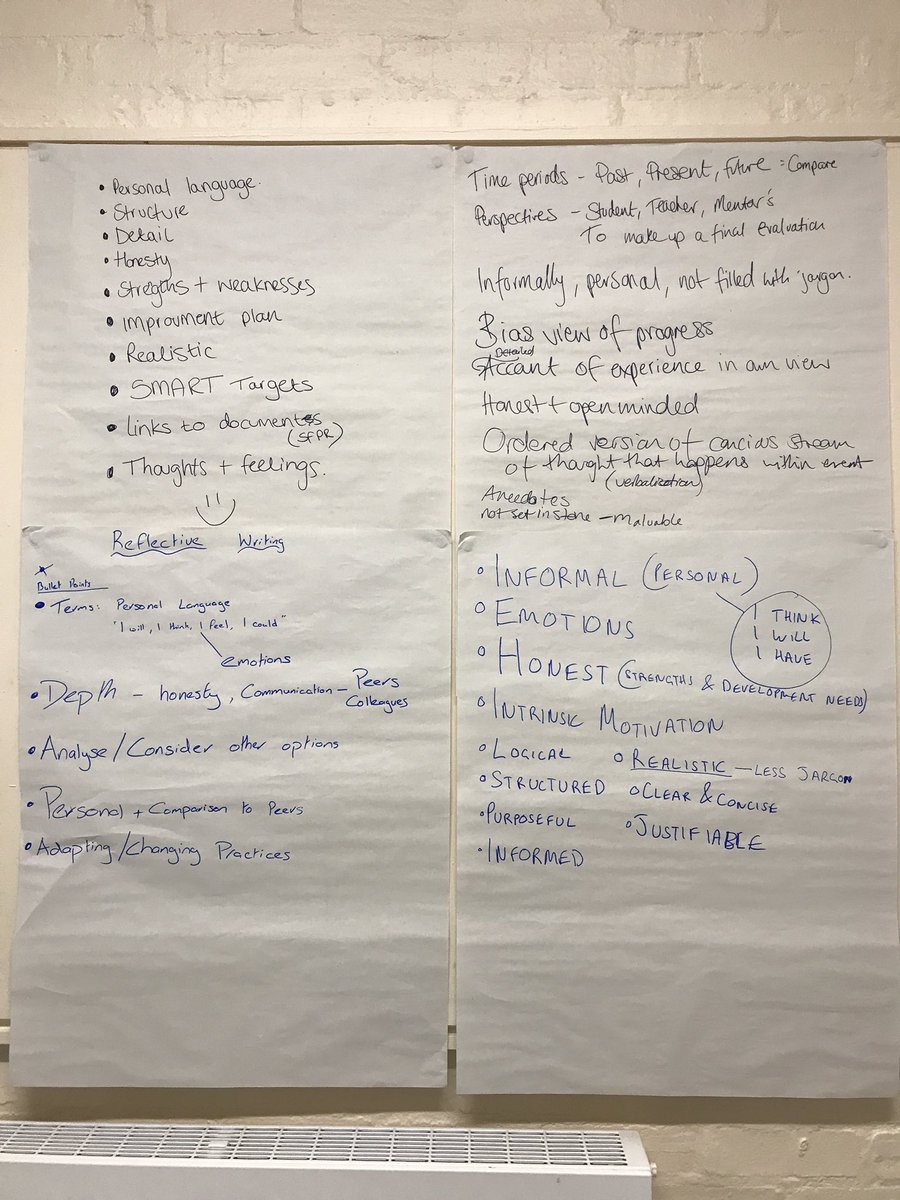 • Personal language.
• Structure
• Detail
• Honesty
• Stregths + weaknesses
• Improvment plan
• Realistic
• SMART Targets
• Links to documents
(SFPR)
• Thoughts + feelings.
Time periods - Past, Present, future = Compare
Perspectives - Student, Teacher, Mentor's
To make up a final evaluation
Informally, personal, not filled with 'jargon.
Bias view of progress
Detailed
Account of experience in own view
Honest + openminded
Ordered version of concious stream
of thought that happens within event
(verbalisation)
Anecdotes
not set in stone - maluable
Reflective Writing
Bullet Points
• Terms: Personal Language
"I will, I think, I feel, I could"
emotions
• Depth - honesty, Communication - Peers
Colleagues
• Analyse/Consider other options
• Personal + Comparison to Peers
• Adapting/Changing Practices
• INFORMAL (PERSONAL)
I THINK
I WILL
I HAVE
• EMOTIONS
• HONEST (STRENGTHS & DEVELOPMENT NEEDS)
• INTRINSIC MOTIVATION
• LOGICAL
• REALISTIC - LESS JARGON
• STRUCTURED
• CLEAR & CONCISE
• PURPOSEFUL
• JUSTIFIABLE
• INFORMED